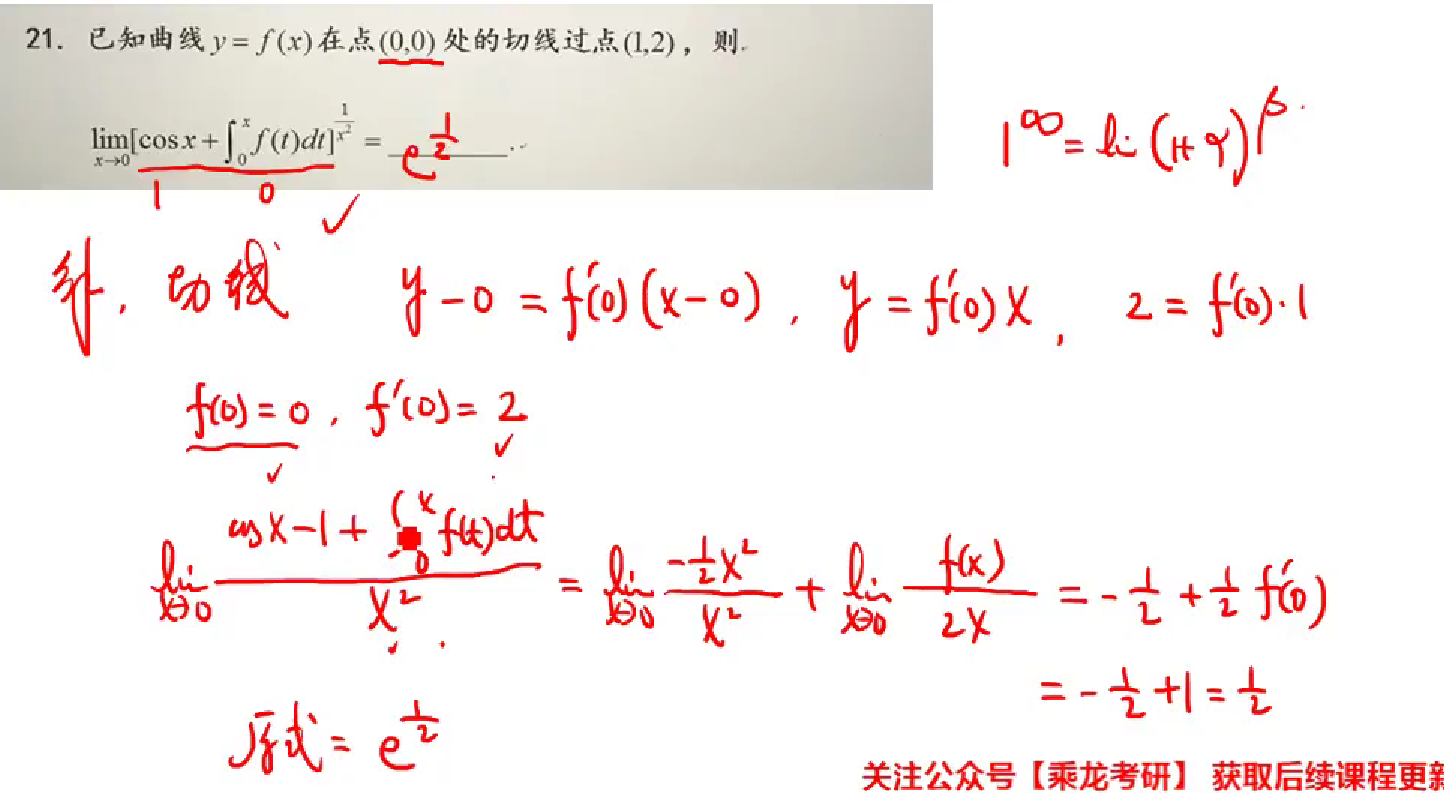 21. 已知曲线 y = f(x) 在点 (0,0) 处的切线过点 (1,2)，则
lim_{x→0}[cos x + ∫_0^x f(t)dt]^{1/x²} = e^{1/2}
1 0 ✓
1^∞ = li (1+α)^β
斜. 切线 y-0 = f'(0)(x-0), y = f'(0)x, 2 = f'(0)·1
f(0)=0, f'(0)=2
✓ ✓
lim_{x→0} (cosx-1+∫_0^x f(t)dt)/x² = lim_{x→0} (-1/2 x²)/x² + lim_{x→0} f(x)/2x = -1/2 + 1/2 f'(0)
= -1/2 + 1 = 1/2
原式 = e^{1/2}
关注公众号【乘龙考研】 获取后续课程更新